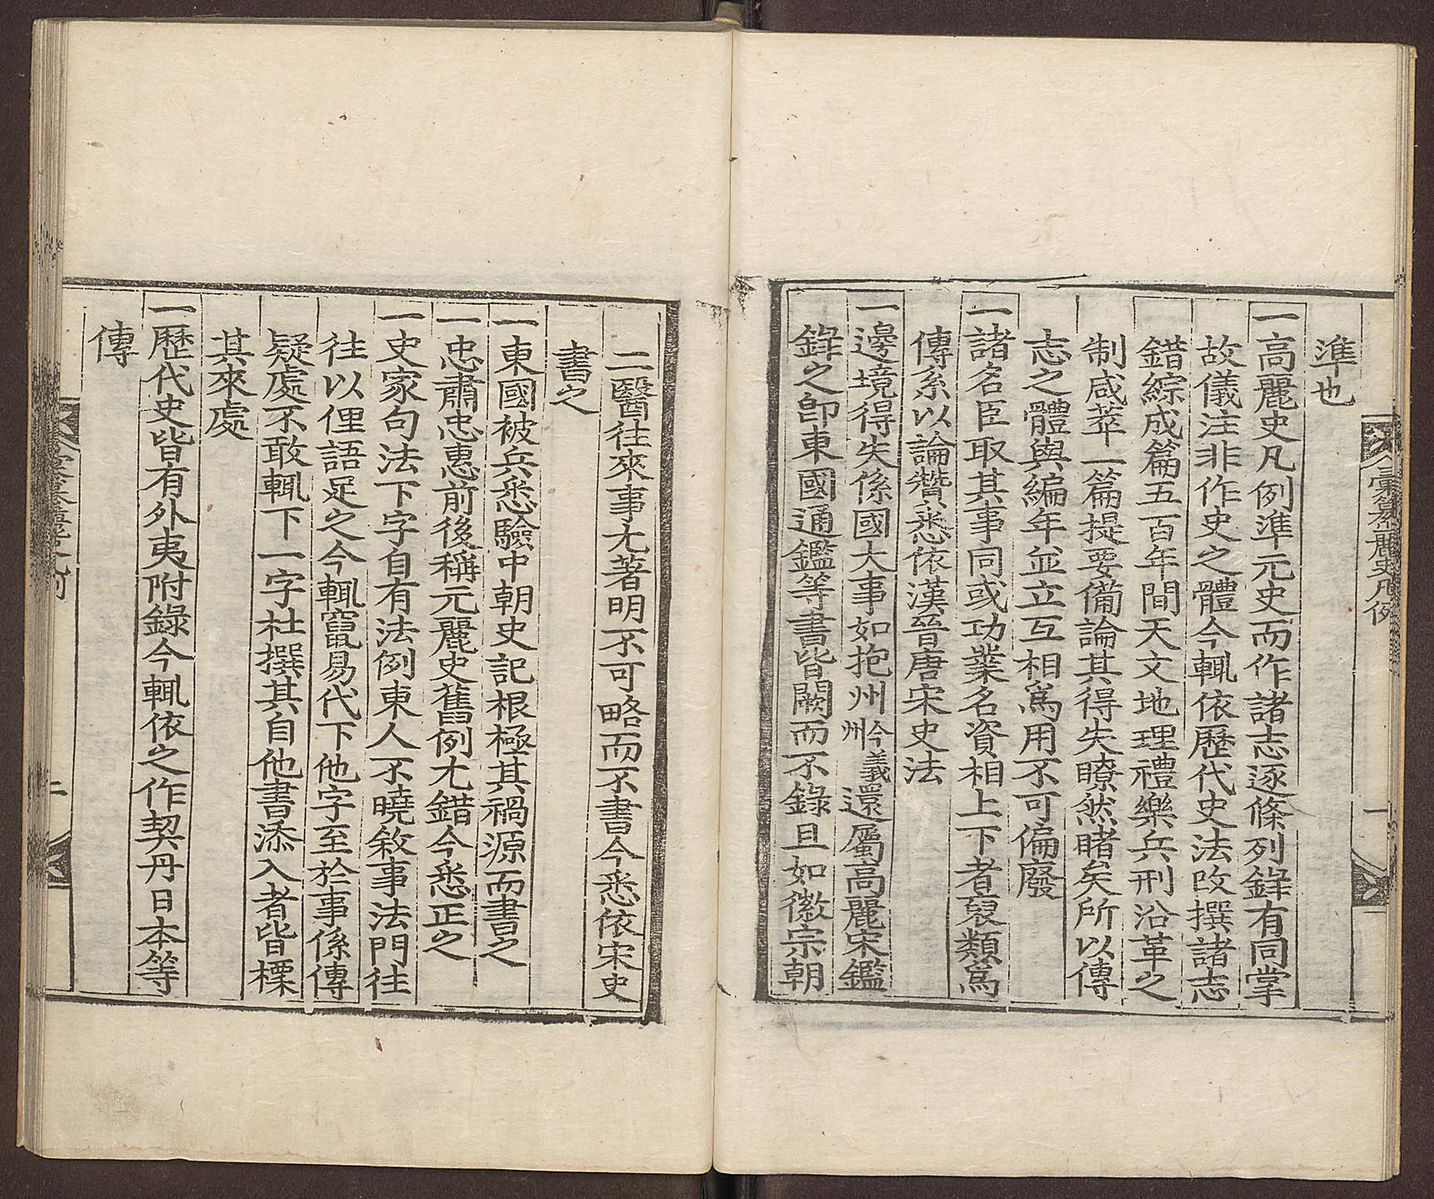 準也
一高麗史凡例準元史而作諸志逐條列錄有同掌
故儀注非作史之體今輒依歷代史法改撰諸志
錯綜成篇五百年間天文地理禮樂兵刑沿革之
制咸萃一篇提要備論其得失瞭然睹矣所以傳
志之體與編年並立互相爲用不可偏廢
一諸名臣取其事同或功業名資相上下者裒類爲
傳系以論贊悉依漢晉唐宋史法
一邊境得失係國大事如抱州今義州還屬高麗宋鑑
錄之卽東國通鑑等書皆闕而不錄且如徽宗朝
彙纂麗史凡例
一
二醫往來事尤著明不可略而不書今悉依宋史
書之
一東國被兵悉驗中朝史記根極其禍源而書之
一忠肅忠惠前後稱元麗史舊例尤錯今悉正之
一史家句法下字自有法例東人不曉敘事法門往
往以俚語足之今輒竄易代下他字至於事係傳
疑處不敢輒下一字杜撰其自他書添入者皆標
其來處
一歷代史皆有外夷附錄今輒依之作契丹日本等
傳
二